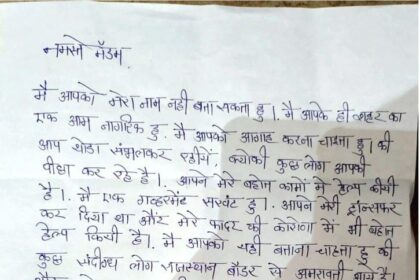 नमस्ते मॅडम,
मै आपको मेरा नाम नही बता सकता हु।. मै आपके ही शहर का
एक आम नागरिक हु. मै आपको आगाह करना चाहता हु। की
आप थोडा संभलकर रहीये. क्योकी कुछ लोग आपकी
पीछा कर रहे है।. आपने मेरे बहोत कामो मे हेल्प कीयी
है।. मै एक गव्हरमेंट सरवंट हु।. आपने मेरी ट्रान्सफर
कर दिया था और मेरे फादर की कोरोना मे भी बहोत
हेल्प कियी है।. मै आपको यही बताना चाहता हु की
कुछ संदीग्ध लोग राजस्थान बॉडर से अमरावती आये है।